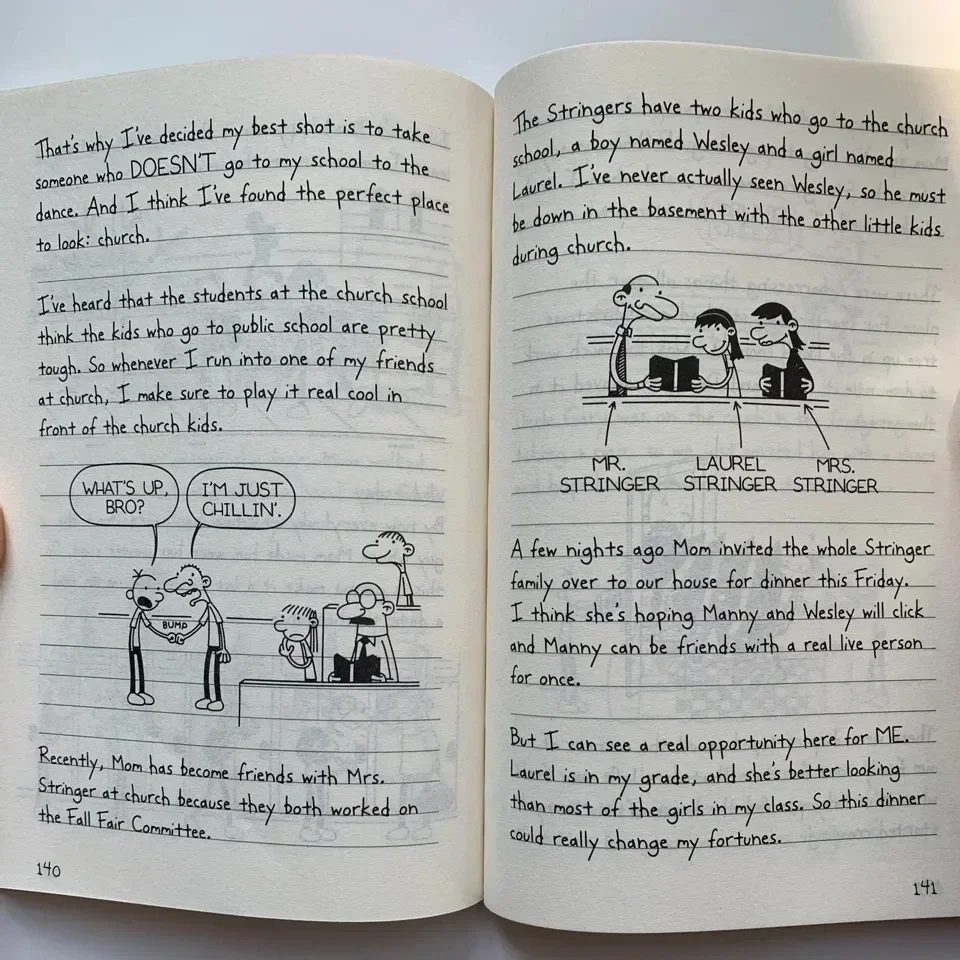 That's why I've decided my best shot is to take
someone who DOESN'T go to my school to the
dance. And I think I've found the perfect place
to look: church.
I've heard that the students at the church school
think the kids who go to public school are pretty
tough. So whenever I run into one of my friends
at church, I make sure to play it real cool in
front of the church kids.
WHAT'S UP,
BRO?
I'M JUST
CHILLIN'.
BUMP
Recently, Mom has become friends with Mrs.
Stringer at church because they both worked on
the Fall Fair Committee.
140
The Stringers have two kids who go to the church
school, a boy named Wesley and a girl named
Laurel. I've never actually seen Wesley, so he must
be down in the basement with the other little kids
during church.
MR.
STRINGER
LAUREL
STRINGER
MRS.
STRINGER
A few nights ago Mom invited the whole Stringer
family over to our house for dinner this Friday.
I think she's hoping Manny and Wesley will click
and Manny can be friends with a real live person
for once.
But I can see a real opportunity here for ME.
Laurel is in my grade, and she's better looking
than most of the girls in my class. So this dinner
could really change my fortunes.
141